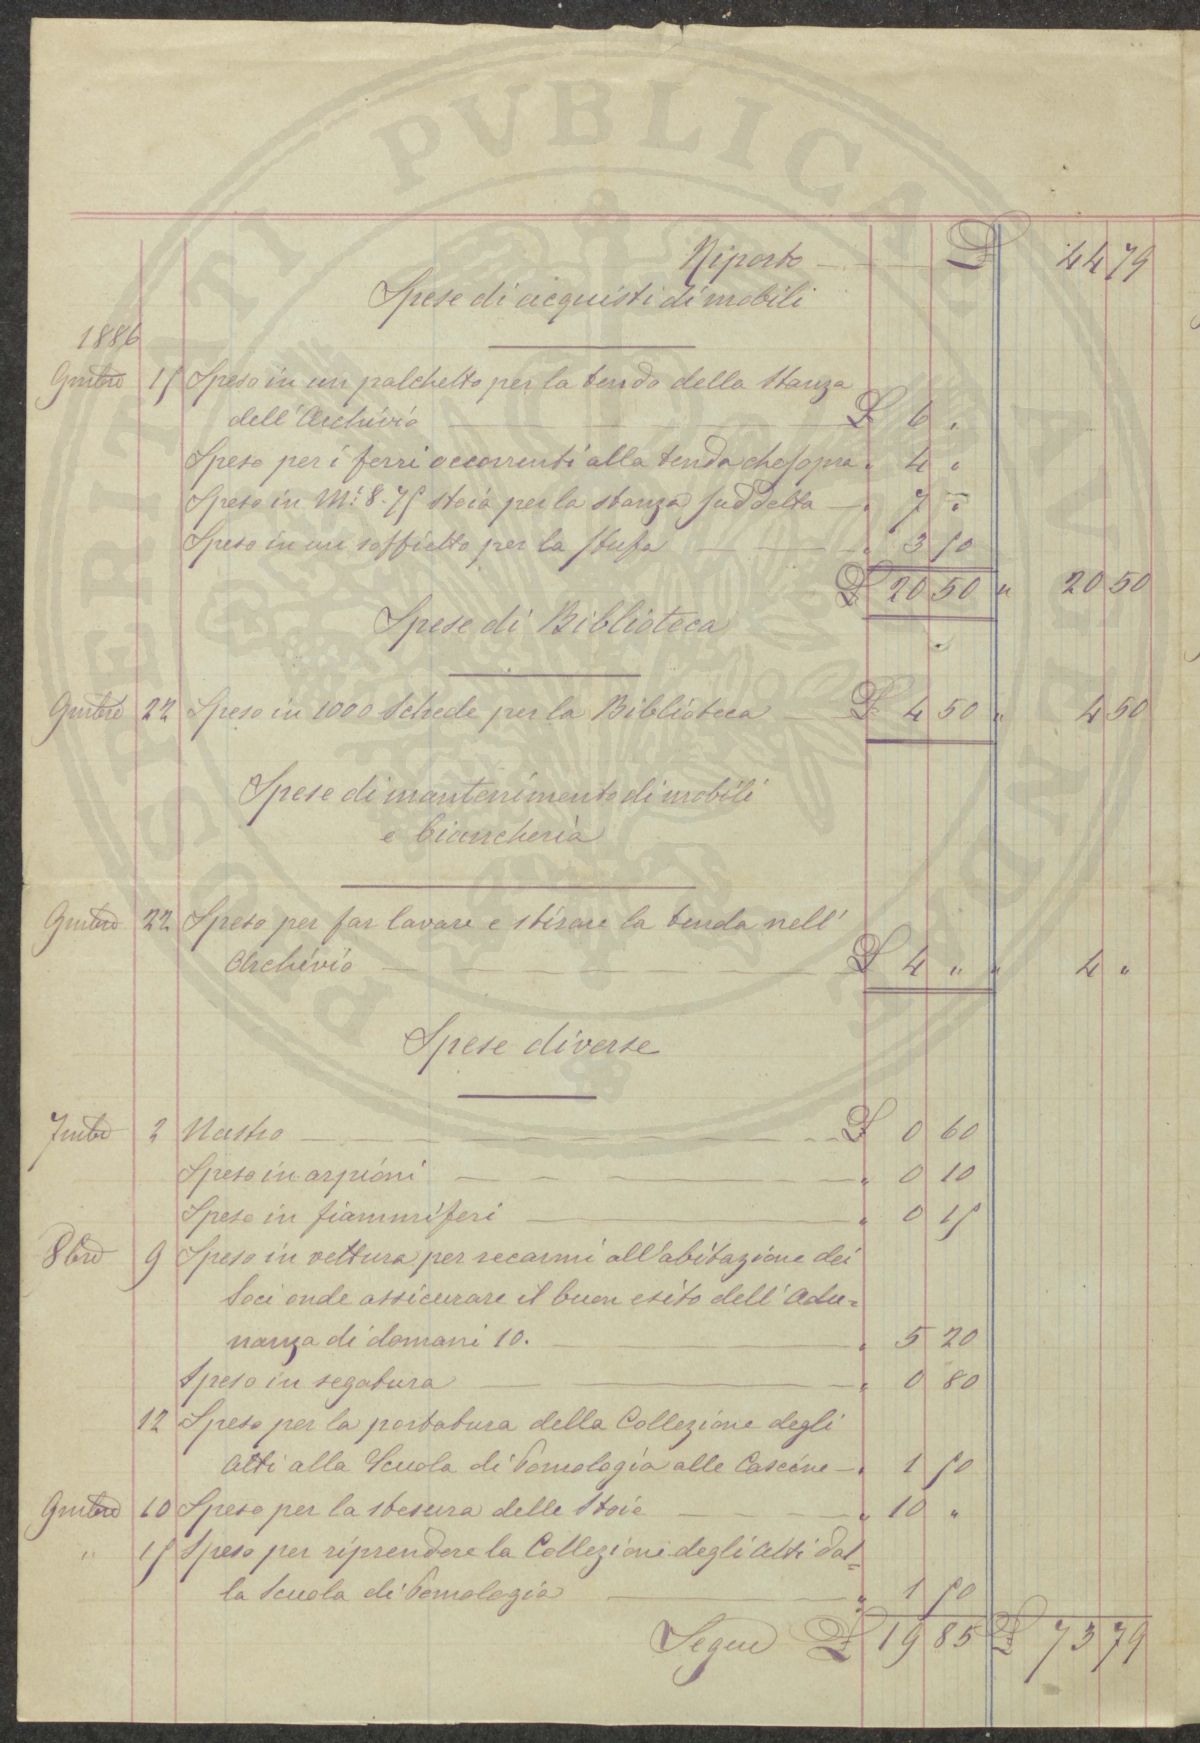 PROSPERITATI PVBLICAE AVGENDAE
Riporto £ 44 79
Spese di acquisti di mobili
1886
9mbre 15 Speso in un palchetto per la tenda della Stanza
dell'Archivio £ 6 "
Speso per i ferri occorrenti alla tenda che sopra " 4 "
Speso in Mi 8.75 stoia per la stanza suddetta " 7 "
Speso in un soffietto per la stufa " 3 50
£ 20 50 " 20 50
Spese di Biblioteca
9mbre 22 Speso in 1000 Schede per la Biblioteca £ 4 50 " 4 50
Spese di mantenimento di mobili
e biancheria
9mbre 22 Speso per far lavare e stirare la tenda nell'
Archivio £ 4 " " 4 "
Spese diverse
7mbre 2 Nastro £ 0 60
Speso in arpioni " 0 10
Speso in fiammiferi " 0 15
8bre 9 Speso in vettura per recarmi all'abitazione dei
Soci onde assicurare il buon esito dell'Adu=
nanza di domani 10. " 5 20
Speso in segatura " 0 80
12 Speso per la portatura della Collezione degli
Atti alla Scuola di Pomologia alle Cascine " 1 50
9mbre 10 Speso per la stesura delle Stoie " 10 "
" 15 Speso per riprendere la Collezione degli Atti dal=
la Scuola di Pomologia " 1 50
Segue £ 19 85 £ 73 79